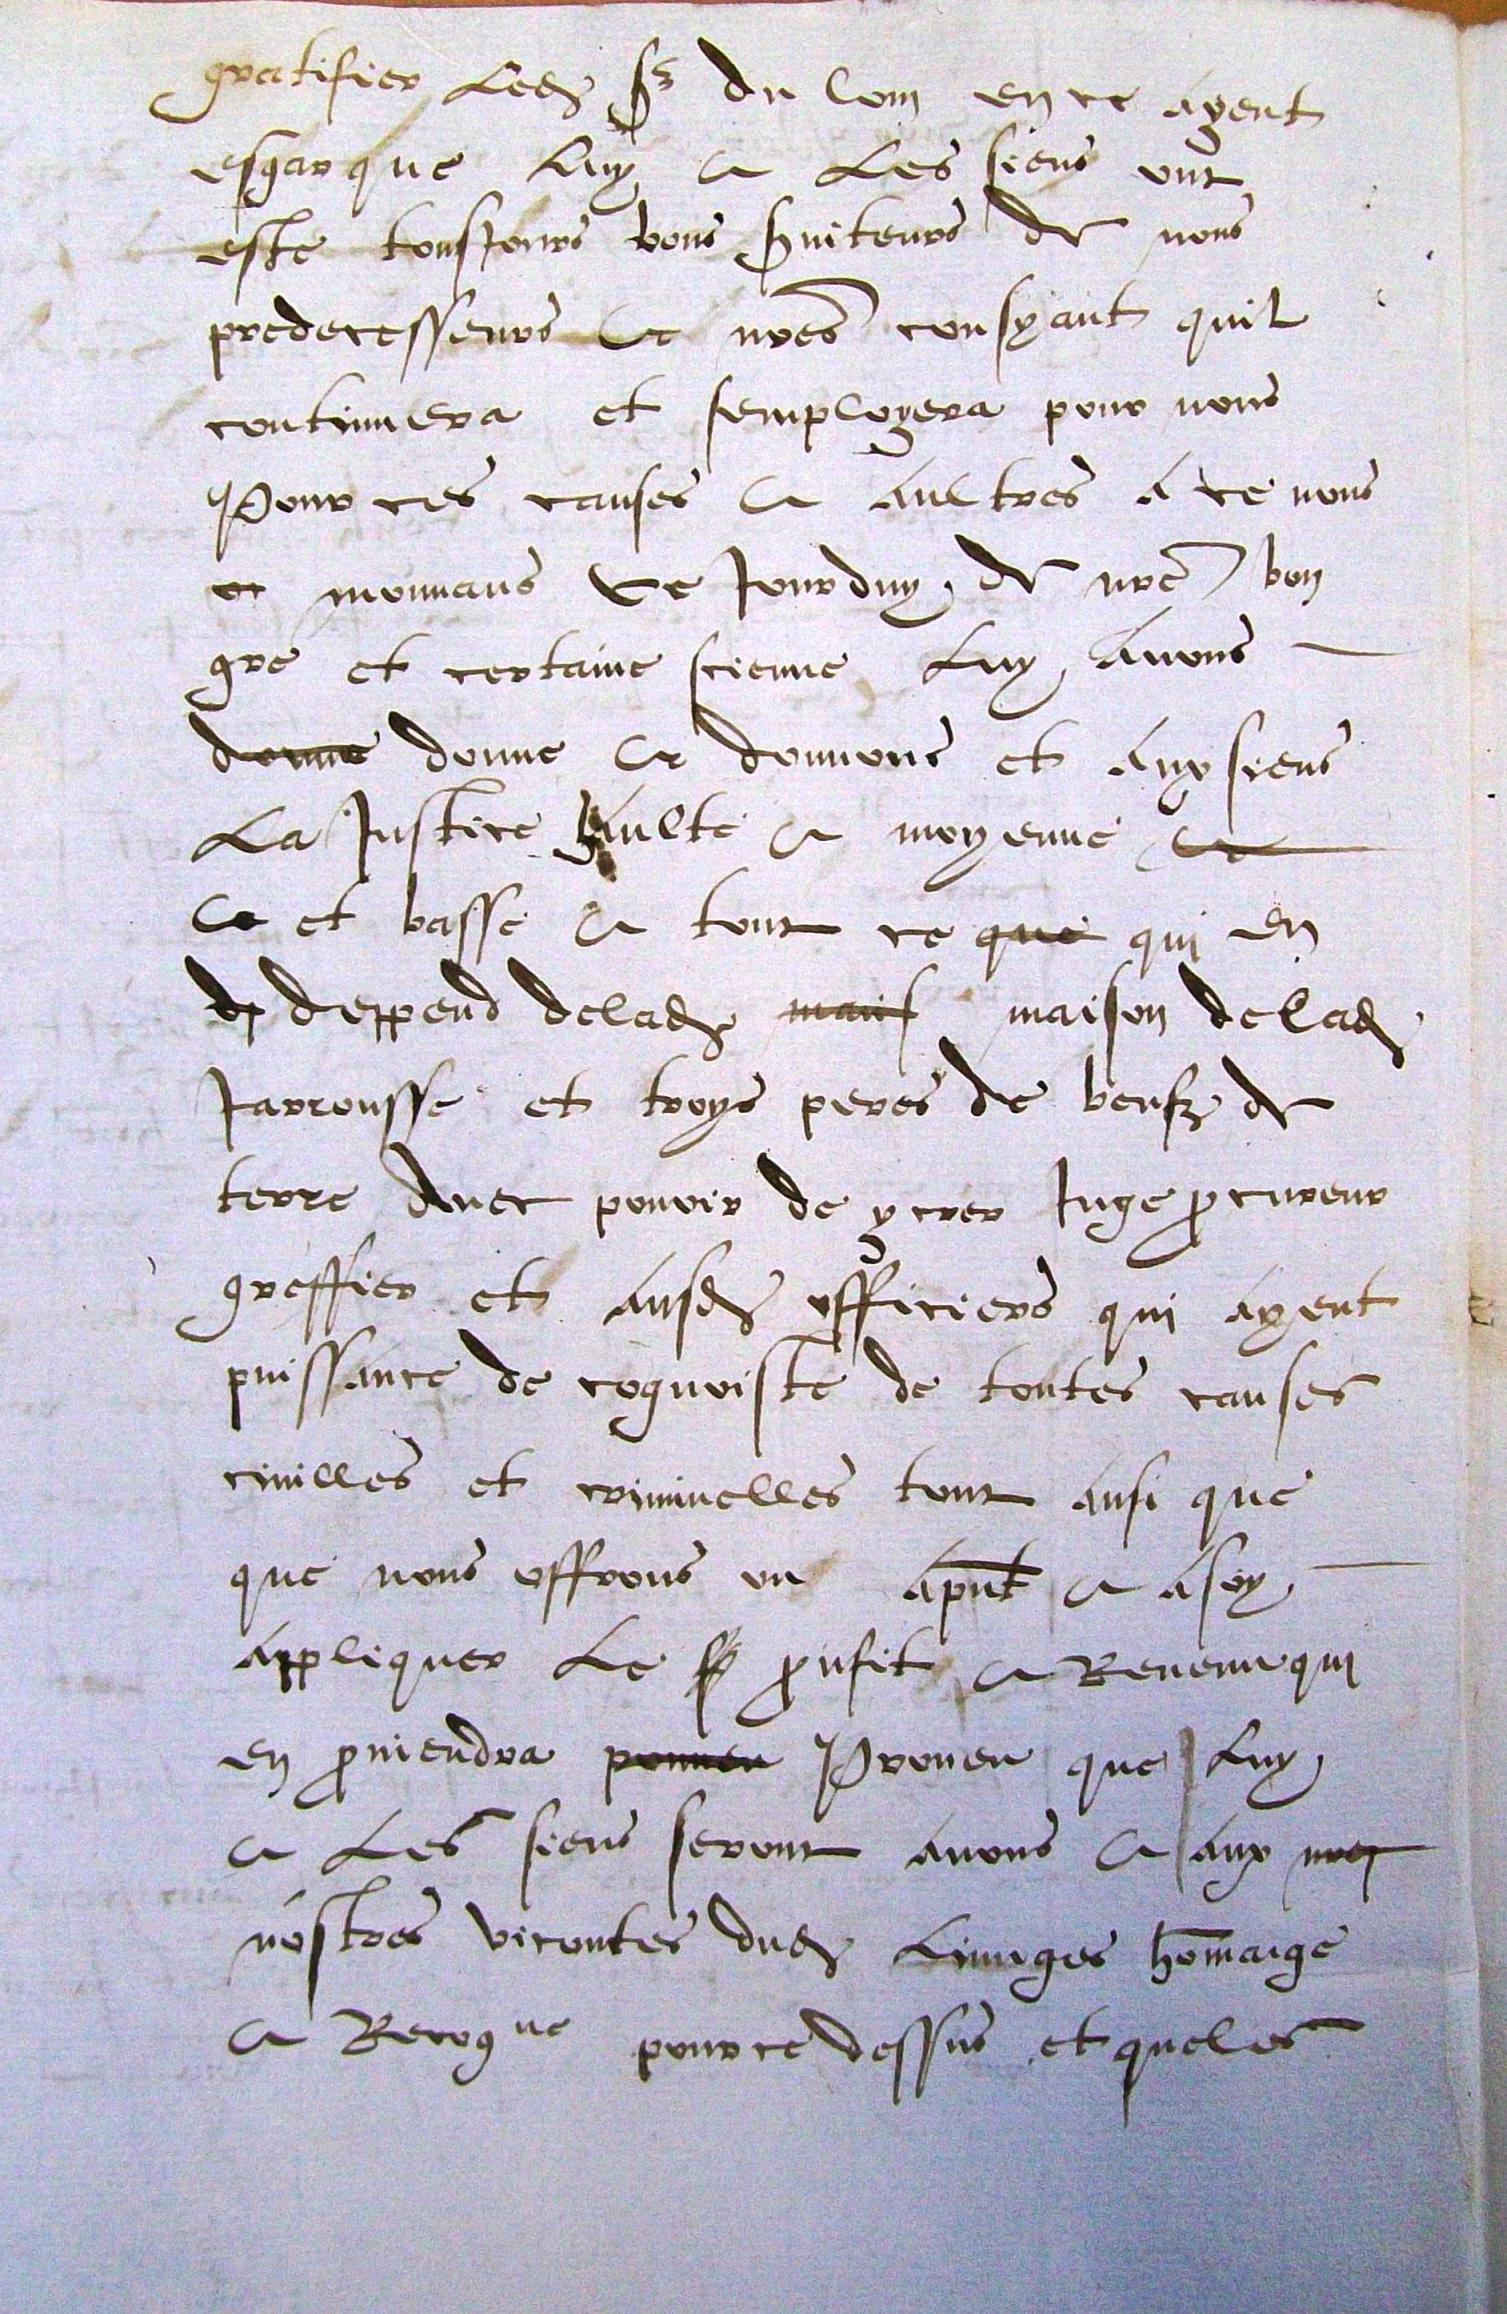 gratifier led Sr du Lom en ce ayent
esgar que luy et les siens ont
este tousjours bons s[er]viteurs de nous
predecesseurs et nres confyant quil
continuera et semployera pour nous
Pour ces causes et aultres a ce nous
et mouvans ce jourduy de nre bon
gre et certaine scienne luy avons
donne donne et donnons et aux siens
la justice haulte et moyenne et
et et basse et tout ce que qui en
dp deppend delad mais maison delad
Jarrousse et troys peres de beufz de
terre avec povoir de y creer juge procureur
greffier et ausd officiers qui ayent
puissance de cognoistre de toutes causes
civilles et criminelles tout ansi que
que nous offrons ou apnt et a soy
appliquer le proufit et revenu qui
en proviendra Proveu que luy
et les siens seront a nous et aux nres
nostres vicontes dud Limoges homaige
et Recogne pour ce dessus et que les